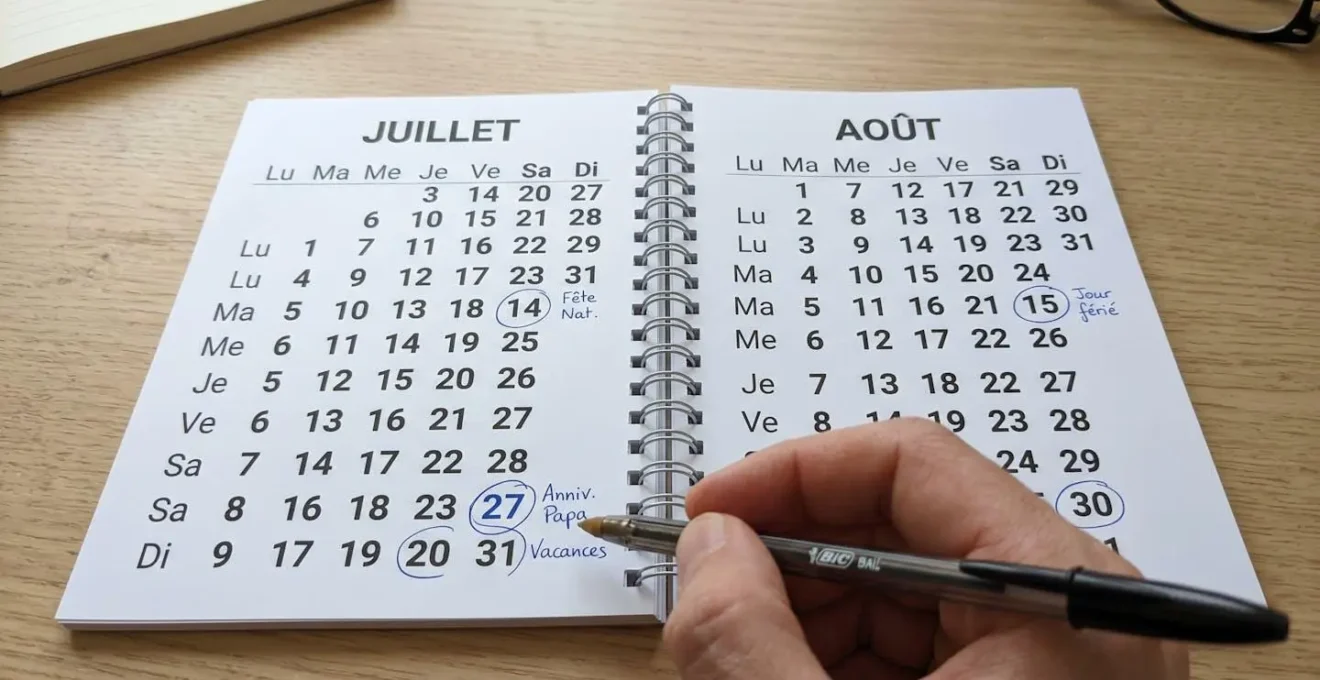 JUILLET
Lu Ma Me Je Ve Sa Di
3 14 20 27
6 10 15 21 28
Lu 1 7 11 16 22 29
Lu 4 9 12 17 23 31
Ma 5 10 13 18 14 Fête
Nat.
Me 6 11 14 19 25
Je 5 12 15 20 26
Ve 6 13 16 21 27
Sa 7 14 17 22 28
Sa 8 16 18 23 27 Anniv.
Papa
Di 9 17 19 20 31 Vacances
AOÛT
Lu Ma Me Je Ve Sa Di
1 7 12 17 21 29
Lu 2 8 13 18 22 30
Lu 3 9 14 19 23 31
Ma 4 10 15 20 24
Ma 5 11 16 21 15 Jour
férié
Me 6 12 17 22 26
Je 7 13 18 22 27
Ve 8 14 19 23 28
24 29
30
BIC